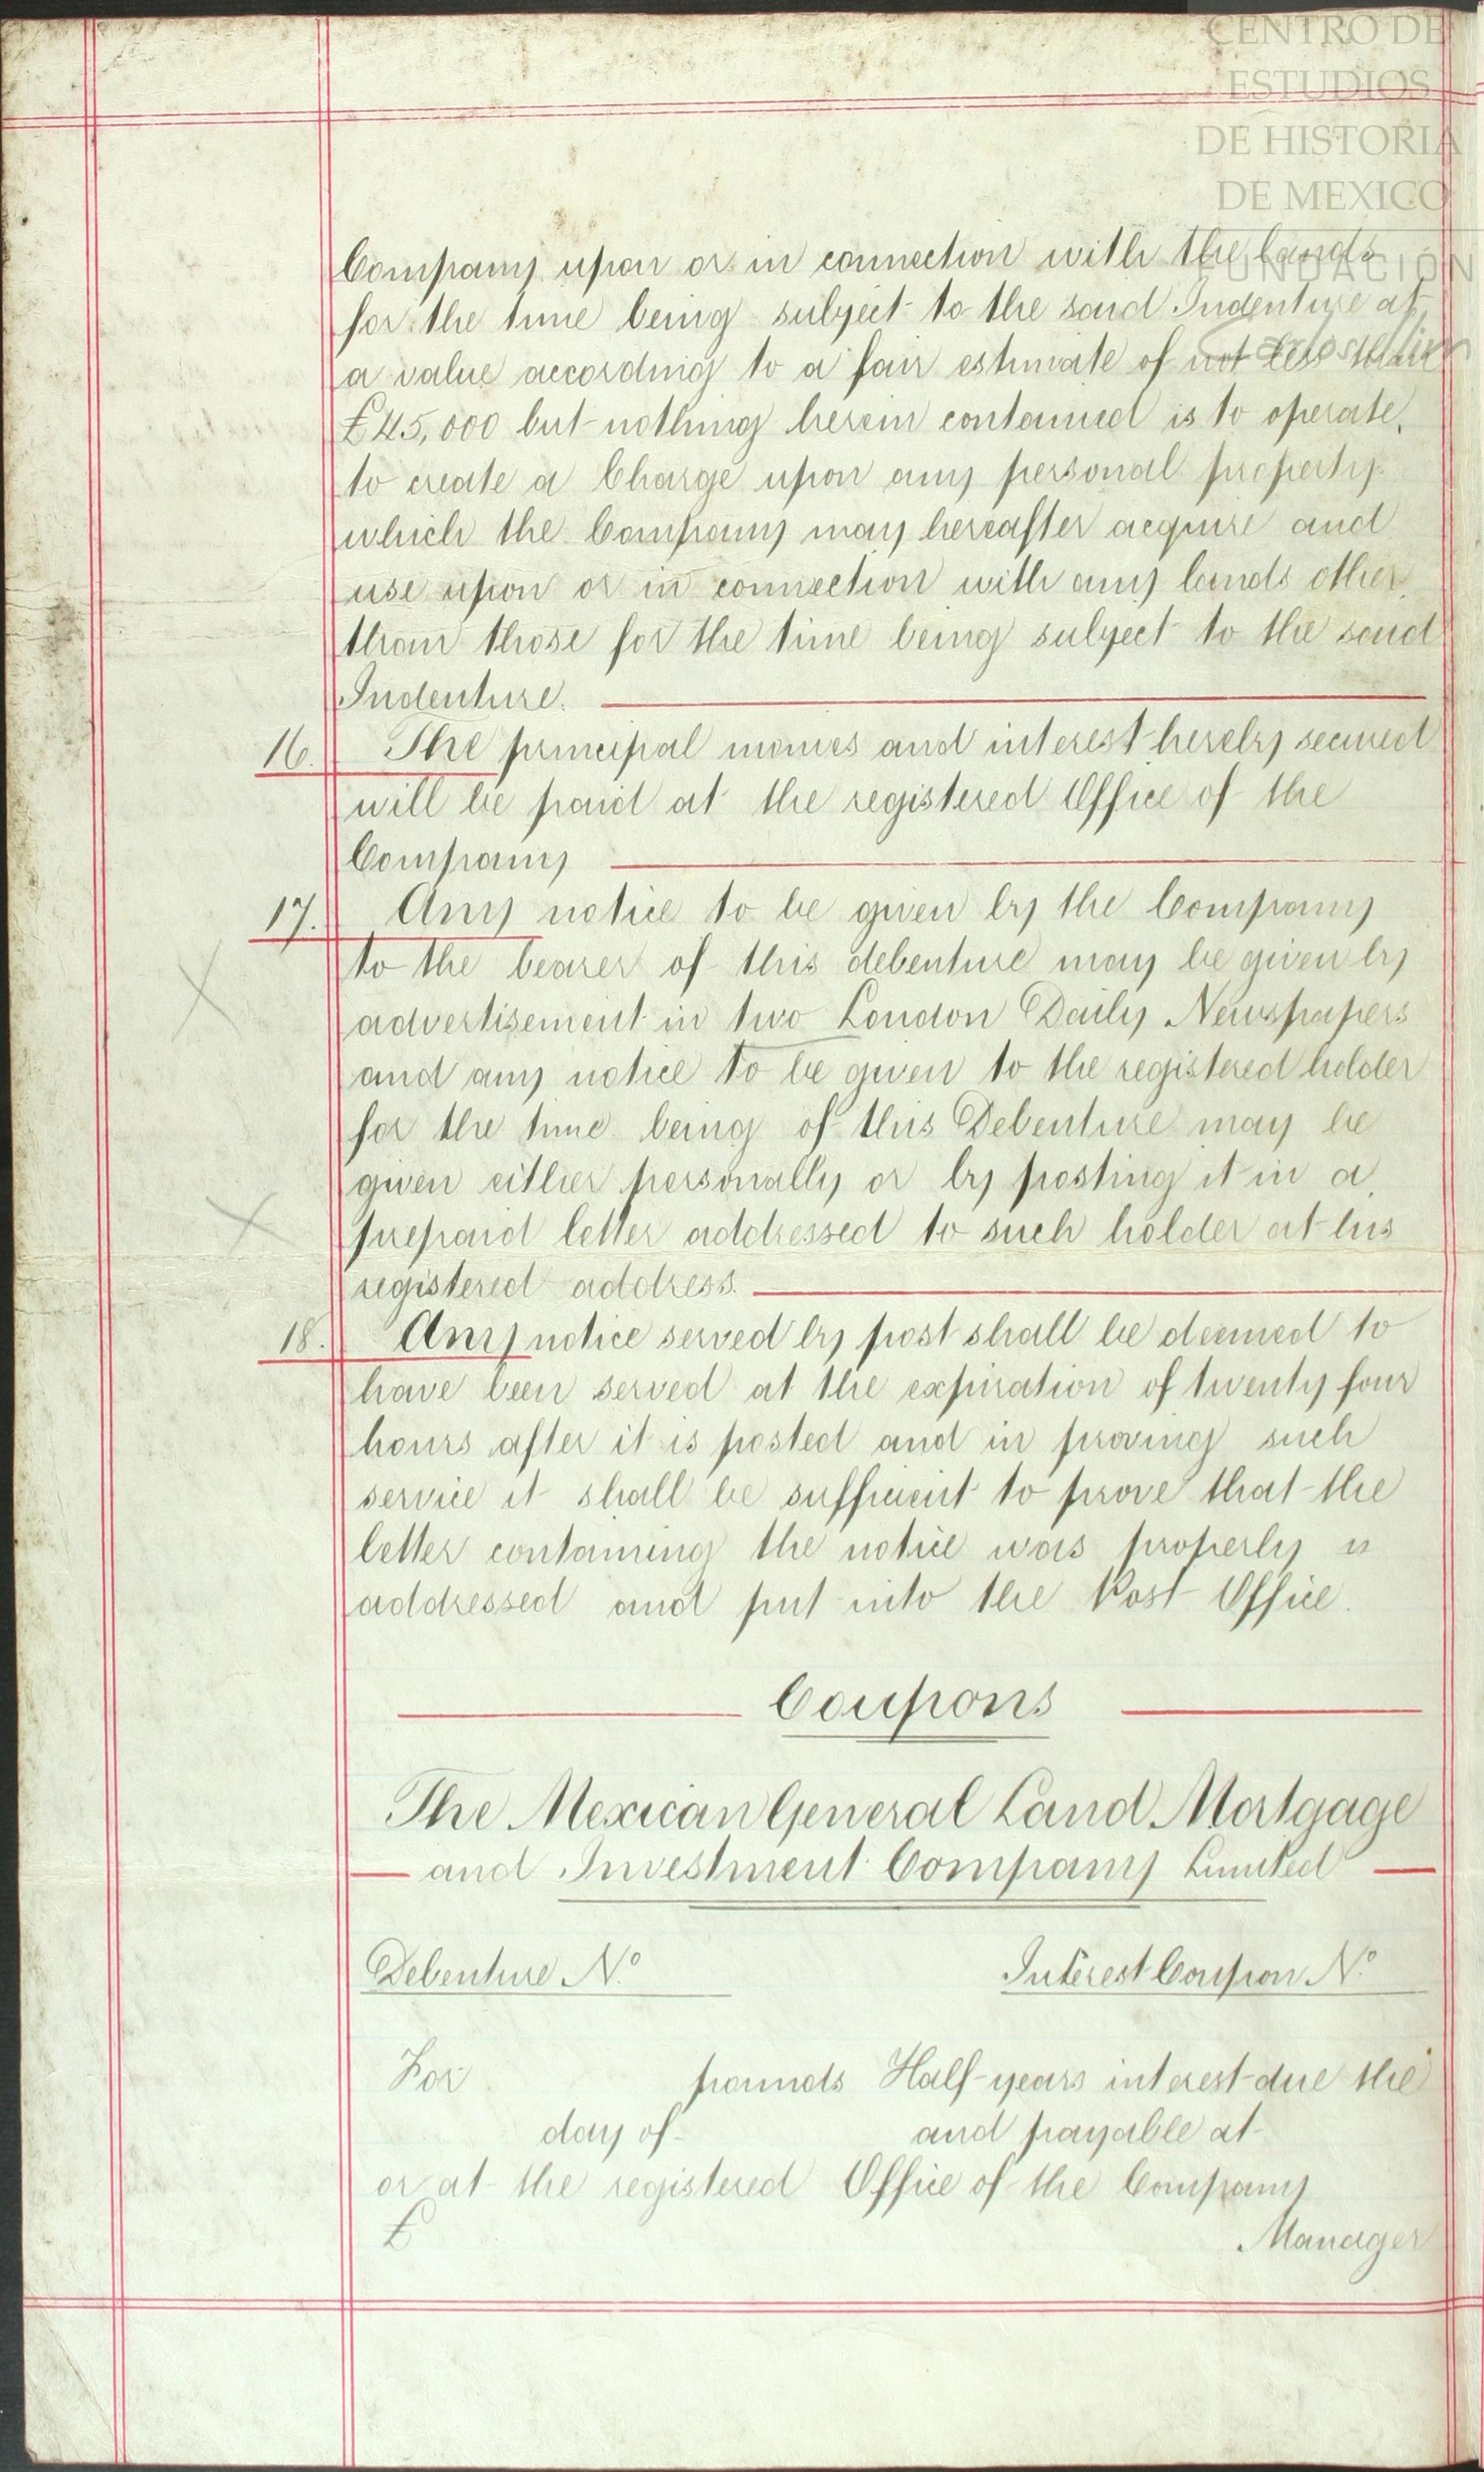 CENTRO DE
ESTUDIOS
DE HISTORIA
DE MEXICO
FUNDACIÓN
Carlos Slim
Company upon or in connection with the lands
for the time being subject to the said Indenture at
a value according to a fair estimate of not less than
£45,000 but nothing herein contained is to operate
to create a Charge upon any personal property
which the Company may hereafter acquire and
use upon or in connection with any lands other
than those for the time being subject to the said
Indenture.
16. The principal monies and interest hereby secured
will be paid at the registered Office of the
Company
17. Any notice to be given by the Company
to the bearer of this debenture may be given by
advertisement in two London Daily Newspapers
and any notice to be given to the registered holder
for the time being of this Debenture may be
given either personally or by posting it in a
prepaid letter addressed to such holder at his
registered address.
18. Any notice served by post shall be deemed to
have been served at the expiration of twenty four
hours after it is posted and in proving such
service it shall be sufficient to prove that the
letter containing the notice was properly
addressed and put into the Post Office.
Coupons
The Mexican General Land Mortgage
and Investment Company Limited
Debenture No. Interest Coupon No.
For pounds Half-years interest due the
day of and payable at
or at the registered Office of the Company
£ Manager